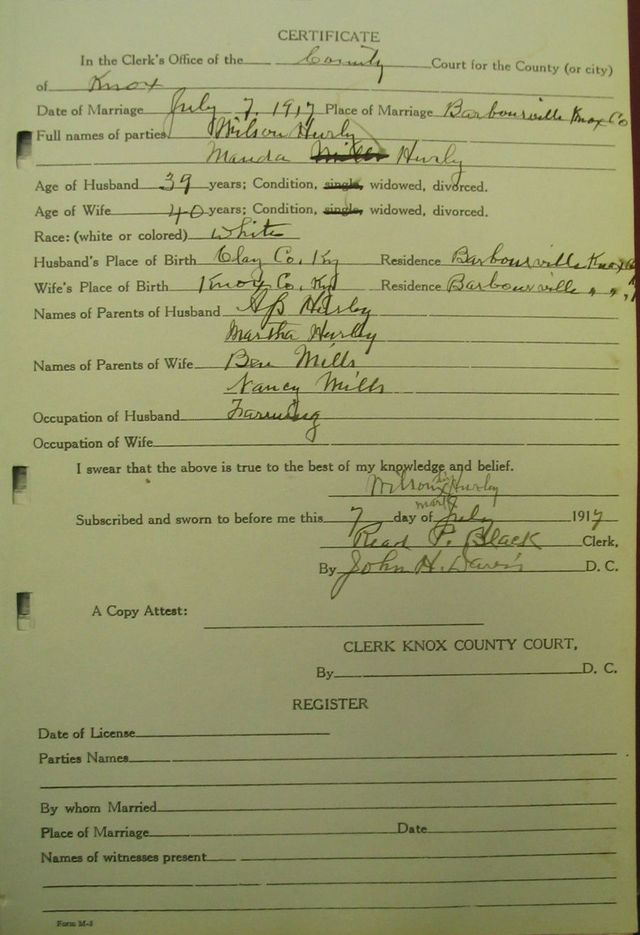 CERTIFICATE
In the Clerk's Office of the County Court for the County (or city)
of Knox
Date of Marriage July 7, 1917 Place of Marriage Barbourville Knox Co
Full names of parties Wilson Hurly
Manda Mills Hurly
Age of Husband 39 years; Condition, single, widowed, divorced.
Age of Wife 40 years; Condition, single, widowed, divorced.
Race: (white or colored) white
Husband's Place of Birth Clay Co, Ky Residence Barbourville Knox
Wife's Place of Birth Knox Co, Ky Residence Barbourville " "
Names of Parents of Husband Hurley
Martha Hurley
Names of Parents of Wife Ben Mills
Nancy Mills
Occupation of Husband Farming
Occupation of Wife
I swear that the above is true to the best of my knowledge and belief.
his
Wilson x Hurley
mark
Subscribed and sworn to before me this 7 day of July 1917
Read P. Black Clerk,
By John H. Davis D. C.
A Copy Attest:
CLERK KNOX COUNTY COURT,
By D. C.
REGISTER
Date of License
Parties Names
By whom Married
Place of Marriage Date
Names of witnesses present
Form M-3